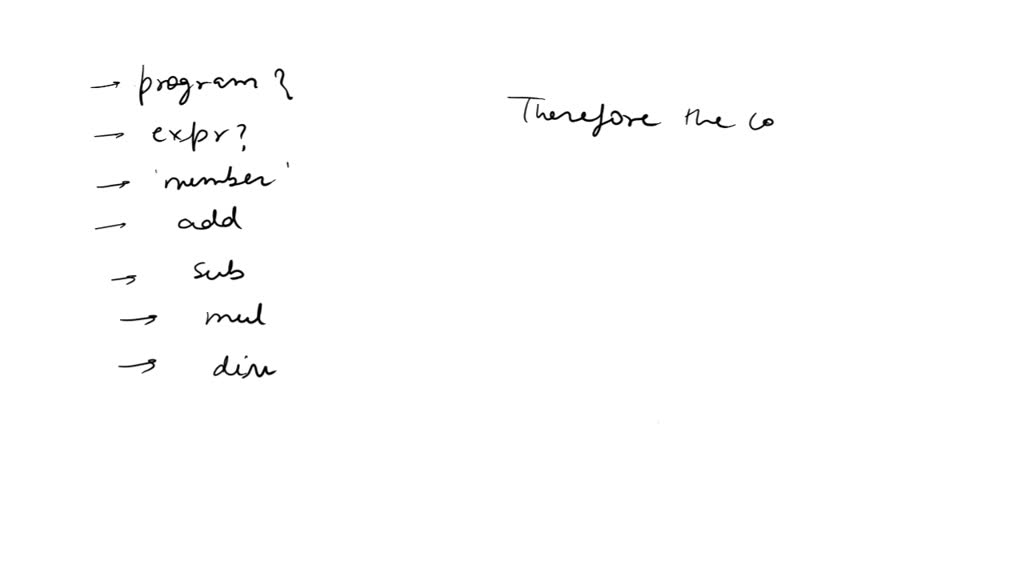 → program {
→ expr?
→ 'number'
→ add
→ sub
→ mul
→ div
Therefore the co